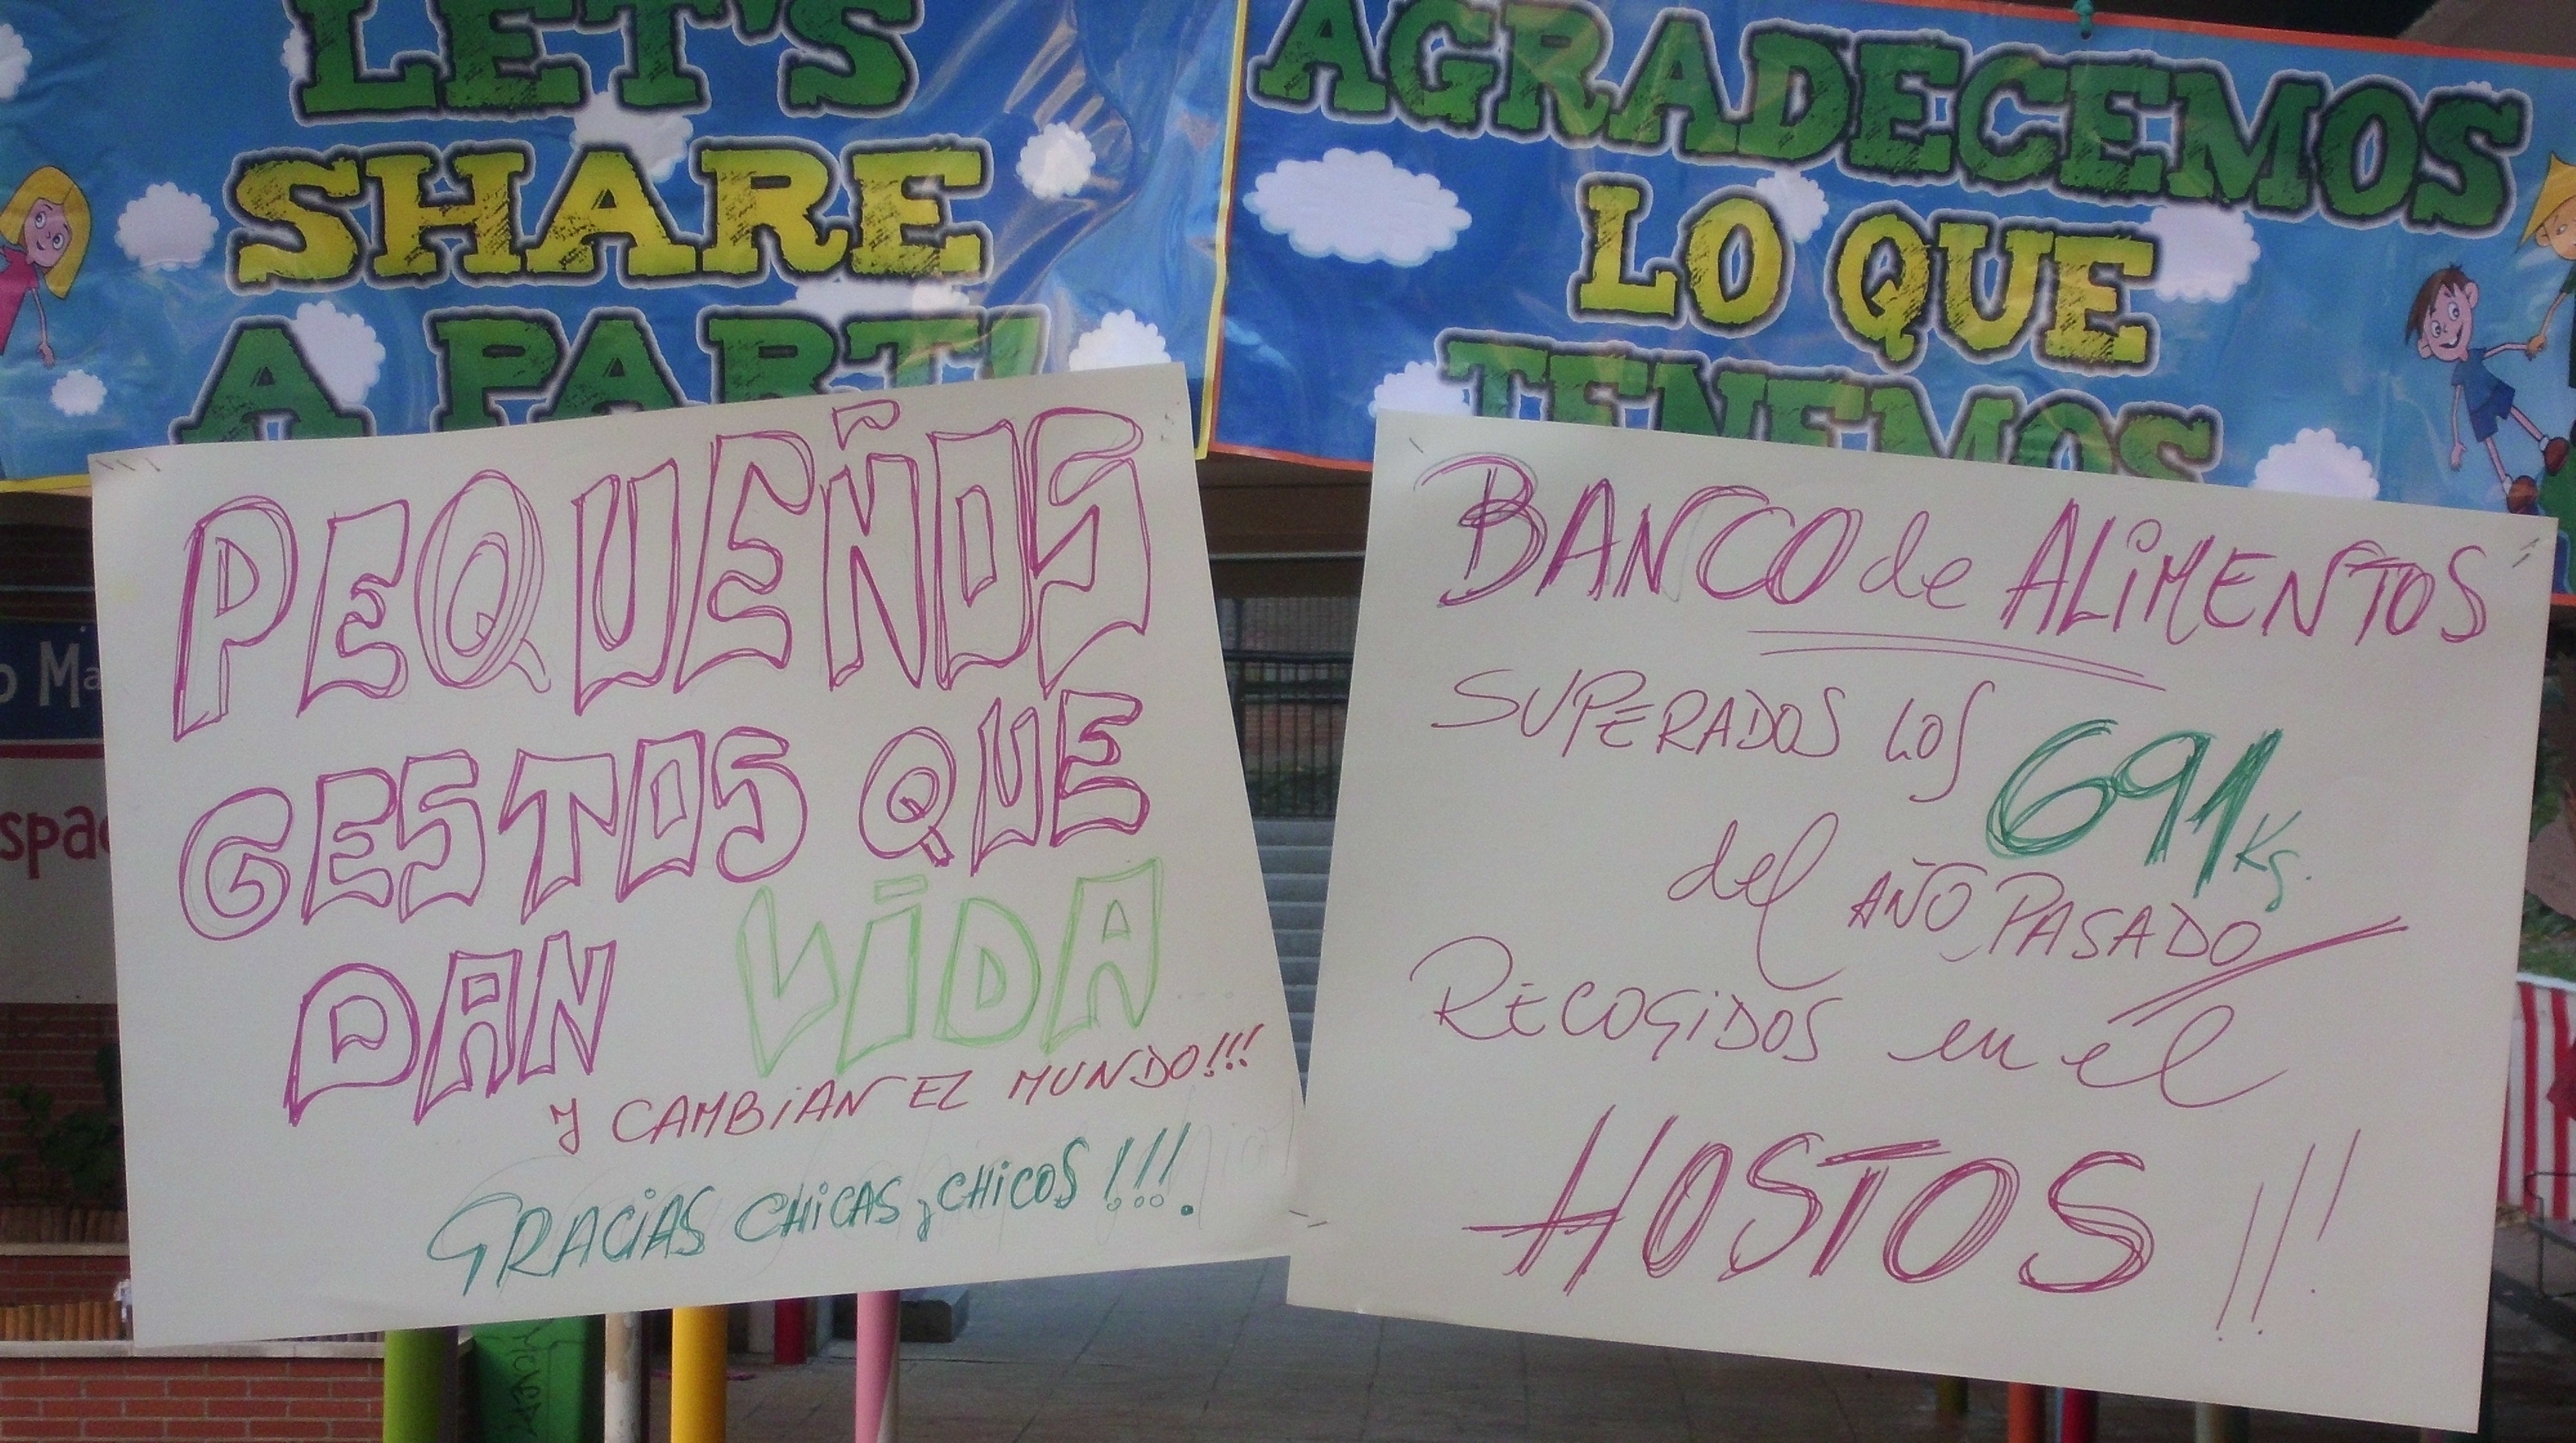 LET'S
SHARE
A PART!
AGRADECEMOS
LO QUE
TENEMOS
PEQUEÑOS
GESTOS QUE
DAN VIDA
Y CAMBIAN EL MUNDO!!!
GRACIAS CHICAS y CHICOS!!!.
BANCO de ALIMENTOS
SUPERADOS LOS 691 Kg.
del AÑO PASADO
RECOGIDOS en el
HOSTOS!!!